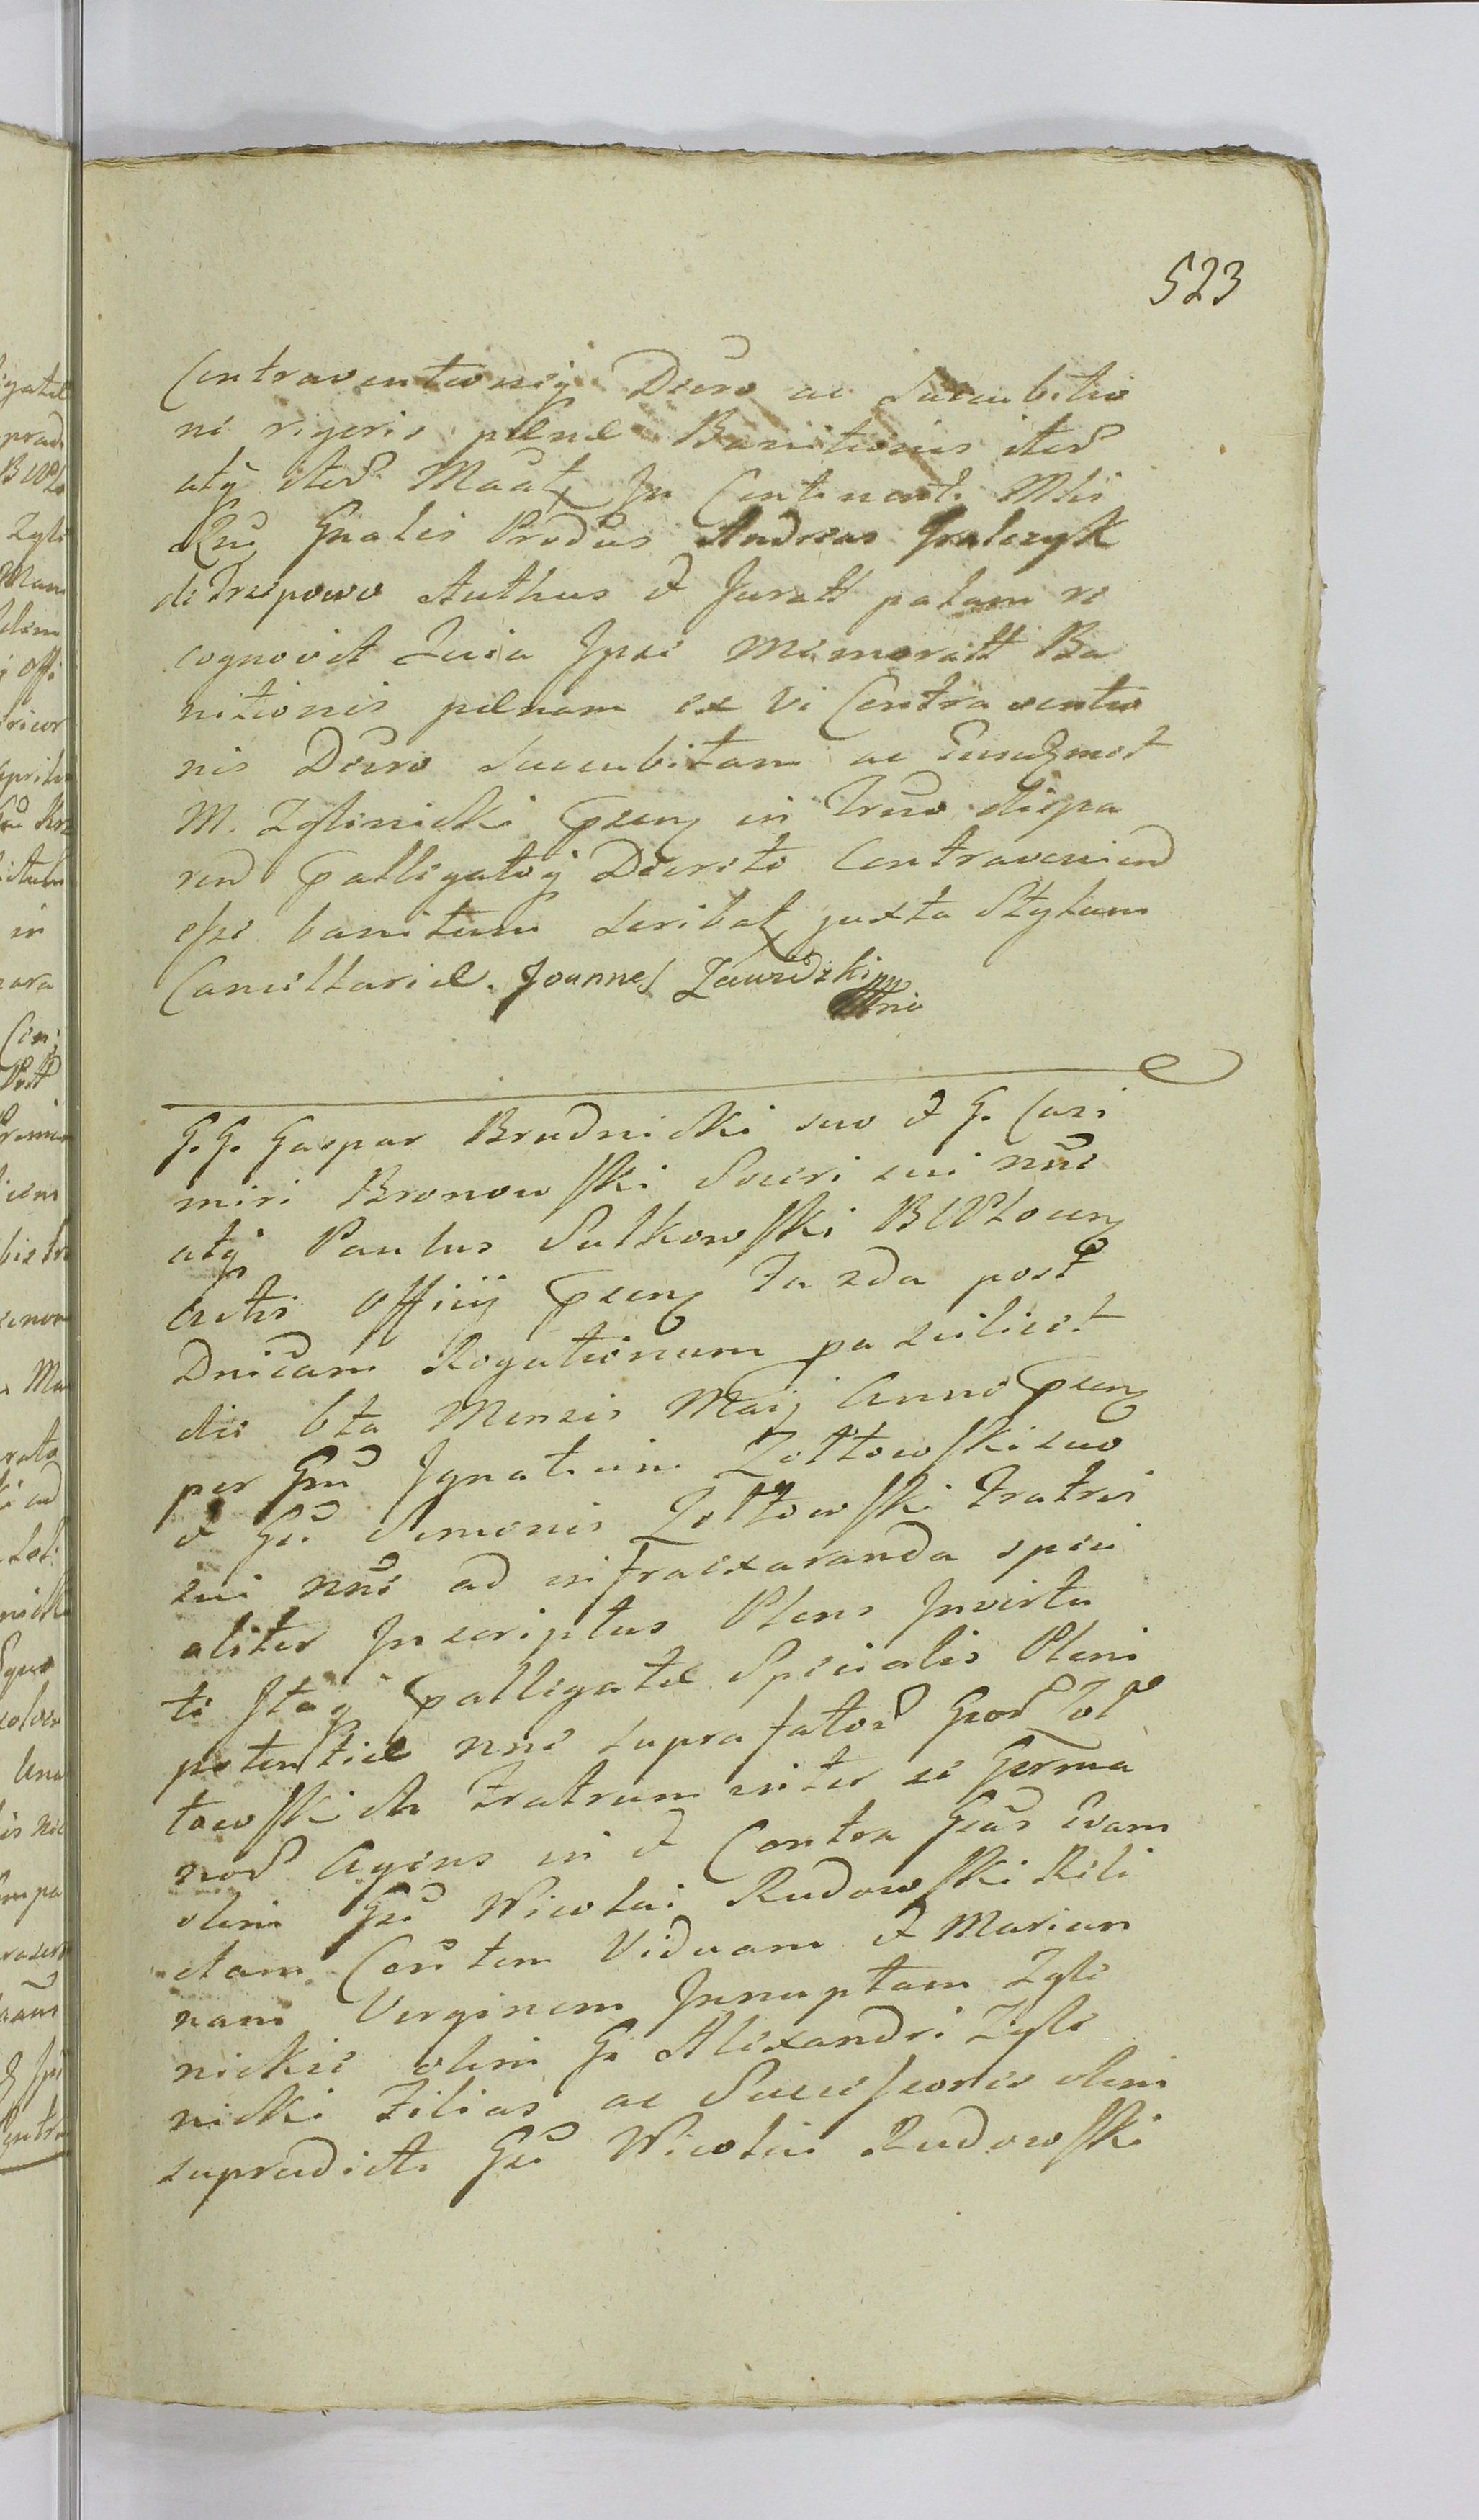 523
Contraventionisq Decro ac Succubitio
ni rigoris penae Banitionis ited
atq ited Maat In Continenti Mtis
Rnu Gnalis Produs Andreas Gralczyk
de Trzepowo Authus et Juratt palam re
cognovit Quia Ipse memoratt Ba
nitionis paenam ex vi Contra ventio
nis Decro Succubitam ac Eundmet
M. Zglinicki psens in Trno dispa
ren palligatoq Decreto Contravenien
esse banitum scribat juxta Stylum
Cancellariae. Joannes Zawidzki mp
G. G. Gaspar Brudnicki suo et G. Casi
miri Bronowski Soceri sui nne
atq Paulus Sutkowski BCPlocens
actis Officij psens Fa 2da post
Dnicam Rogationum pa scilicet
die 6ta Mensis Maij Anno psens
per Gnu Ignatium Zołtowski suo
et Gsi Simonis Zołtowski Fratris
sui nne ad infraexaranda speci
aliter Inscriptus Plens Invirtu
te Itaq palligatae Specialis Pleni
potentiae nne supra fator Gsor Zoł
towskich Fratrum inter se Germa
nor Agens in et Contra Gsas Evam
olim Gsi Nicolai Rudowski Reli
ctam Contem Viduam et Marian
nam Virginem Innuptam Zgli
nickie olim G. Alexandri Zgli
nicki Filias ac Successores olim
supradicti Gsi Nicolai Rudowski